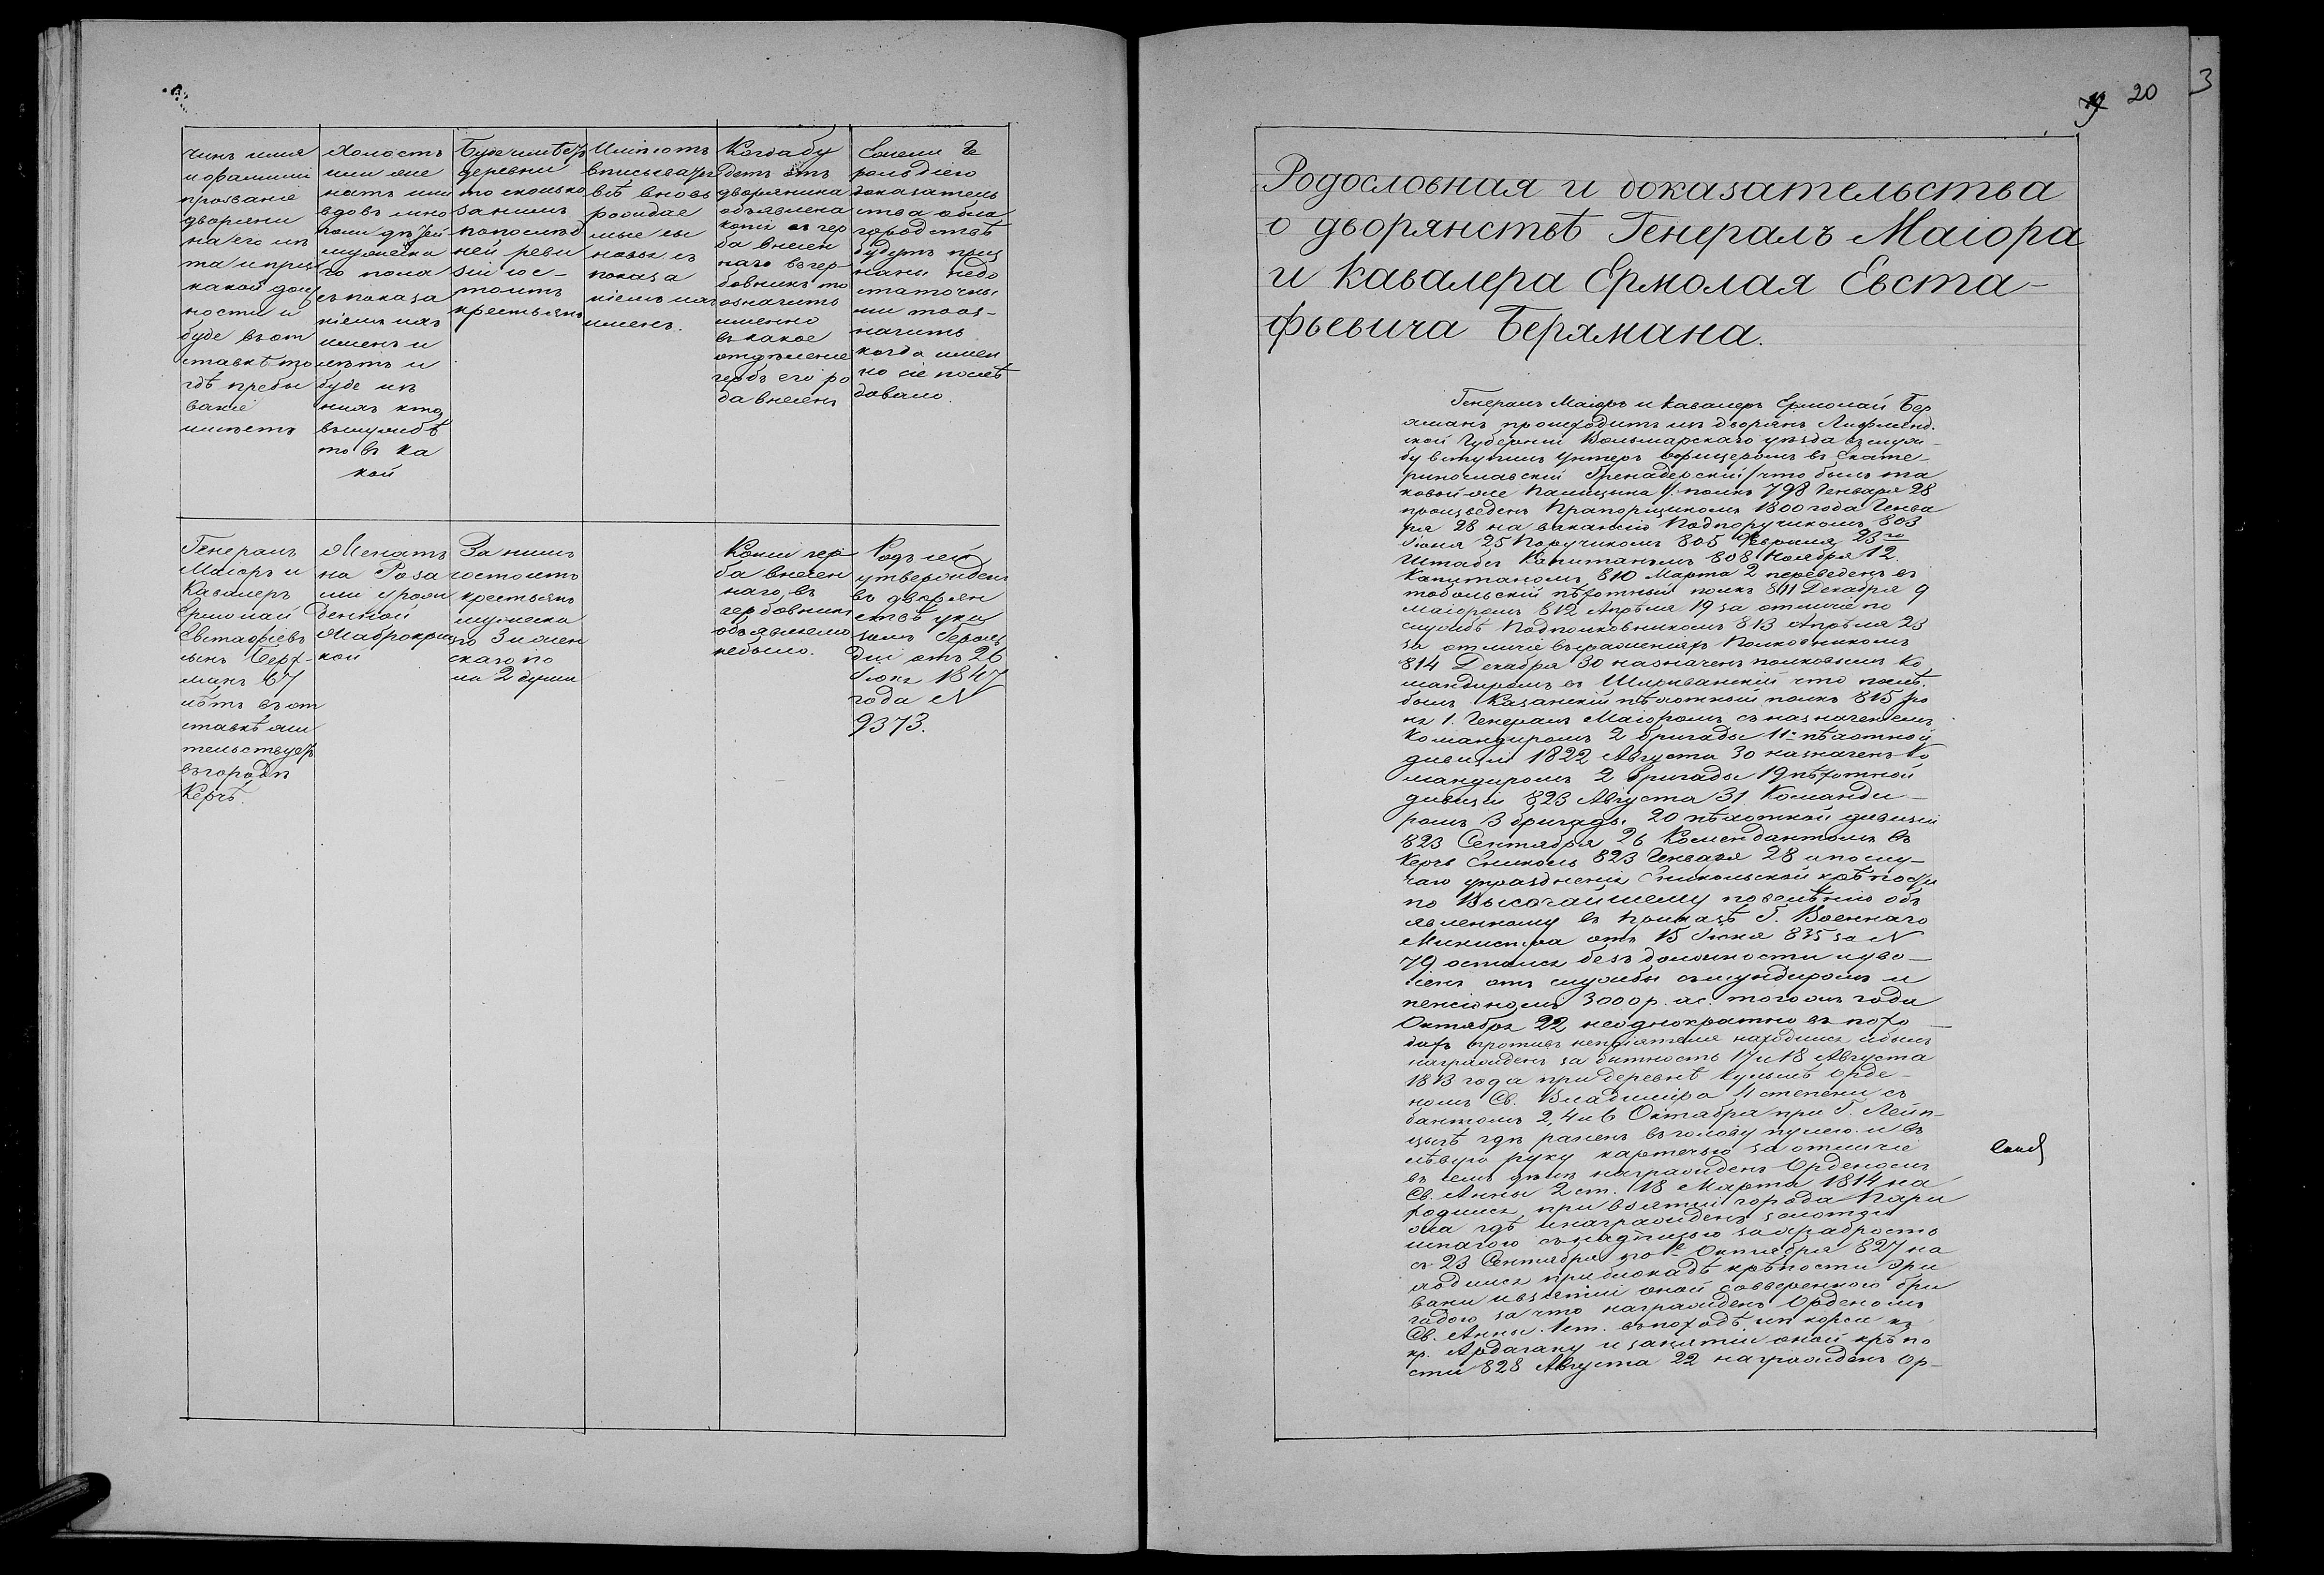 20
3
чинъ имя
и фамилiи
прозванiе
дворяни
на его лѣ
та и при
какой дол
ности и
буде въ от
ставкѣ то
гдѣ пребы
ванiе
имѣетъ
Холостъ
или же
натъ или
вдовъ мно
голи дѣтей
мужеска
го пола
съ показа
нiемъ ихъ
именъ и
лѣтъ и
буде изъ
нихъ кто
въ службѣ
то въ ка
кой
Буде имѣетъ
деревни
то сколько
за нимъ
по послѣд
ней реви
зiи сос-
тоитъ
крестьянъ
Имѣютъ
вписыватъ
всѣ вновь
рождае
мые сы
новья съ
показа
нiемъ ихъ
именъ.
Когда бу
детъ отъ
дворянина
объявлена
копiя съ гер
ба внесен
наго въ гер-
бовникъ то
означить
именно
въ какое
отдѣленiе
гербъ его ро
да внесенъ
Если Ге
рольдiею
доказатель
ства о бла
городствѣ
будутъ приз
наны недо
статочны
ми то оз-
начить
когда имен
но сiе послѣ
довало.
Генералъ
Маiоръ и
Кавалеръ
Ермолай
Евстафiевъ
сынъ Берх-
манъ 67
лѣтъ въ от
ставкѣ жи
тельствуетъ
въ городѣ
Керчѣ.
Женатъ
на Роза
лiи урож
денной
Маврокор
кой
За нимъ
состоитъ
крестьянъ
мужеска
го 3 и жен
скаго по
ла 2 души
Копiи гер
ба внесен
наго въ
гербовникъ
объявлено
небыло.
Родъ сей
утвержденъ
въ дворян
ствѣ ука
зомъ Героль
дiи отъ 26
Iюня 1847
года №
9373.
Родословная и доказательства
о дворянствѣ Генералъ Маiора
и Кавалера Ермолая Евста-
фьевича Беряmана.
Генералъ Маiоръ и Кавалеръ Ермолай Бер
хманъ происходитъ изъ дворянъ Лифлянд.
ской Губернiи Вольмарскаго уѣзда въ служ-
бу вступилъ унтеръ офицеромъ въ Екате-
ринославскiй Гренадерскiй /что былъ та
ковой же Палицына/ полкъ 798 Генваря 28
произведенъ Прапорщикомъ 1800 года Генва
ря 28 на ваканiю Подпоручикомъ 803
Iюня 25 Поручикомъ 805 Февраля 23го
Штабсъ Капитаномъ 808 Ноября 12
Капитаномъ 810 Марта 2 переведенъ въ
тобольскiй пѣхотный полкъ 811 Декабря 9
Маiоромъ 812 Апрѣля 19 за отличiе по
службѣ Подполковникомъ 813 Апрѣля 23
за отличiе въ сраженiяхъ Полковникомъ
814 Декабря 30 назначенъ полковымъ Ко
мандиромъ въ Ширванскiй что послѣ.
былъ Казанскiй пѣхотный полкъ 815 Iю
ня 1. Генералъ Маiоромъ съ назначенiемъ
Командиромъ 2 бригады 11й пѣхотной
дивизiи 1822 Августа 30 назначенъ Ко
мандиромъ 2 бригады 19 пѣхотной
дивизiи 823 Августа 31 Команди-
ромъ 3 бригады 20 пѣхотной дивизiи
823 Сентября 26 Комендантомъ въ
Керчь Ениколь 823 Генваря 28 и по слу-
чаю упраздненiя Еникольской крѣпости
по Высочайшему повелѣнiю объ
явленному въ приказѣ Г. Военнаго
Министра отъ 15 Iюня 835 за №
79 остался безъ должности и уво-
ленъ отъ службы съ мундиромъ и
пенсiономъ 3000 р. ас. того жъ года
Октября 22 неоднократно въ похо-
дахъ противъ непрiятеля находился и былъ
награжденъ за битность 17 и 18 Августа
1813 года при деревнѣ Кульмѣ Орде-
номъ Св. Владимiра 4 степени съ
бантомъ 2, 4 и 6 Октября при Г. Лейп-
цигѣ гдѣ раненъ въ голову пулею и въ
лѣвую руку картечью за отличiе
въ семъ дѣлѣ награжденъ Орденомъ
Св. Анны 2 ст. 18 Марта 1814 на
ходился при взятiи города Пари
жа гдѣ и награжденъ золотою
шпагою съ надписью за храбрость
съ 23 Сентября по 1е Октября 827 на
ходился при блокадѣ крѣпости Эри
вани и взятiи оной со ввѣренною бри
гадою за что награжденъ Орденомъ
Св. Анны 1 ст. въ походѣ изъ Карса къ
кр. Ардагану и занятiи оной крѣпо
сти 828 Августа 22 награжденъ Ор-